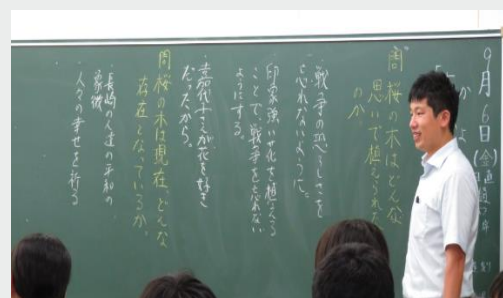 9月6日(金)
問 桜の木はどんな
思いで植えられた
のか。
・戦争の恐ろしさを
忘れないように。
・印象強い花を植える
ことで、戦争を忘れない
ようにする。
・嘉代子さんが花を好き
だったから。
問 桜の木は現在、どんな
存在となっているか。
・長崎の人達の平和の
象徴
・人々の幸せを祈る